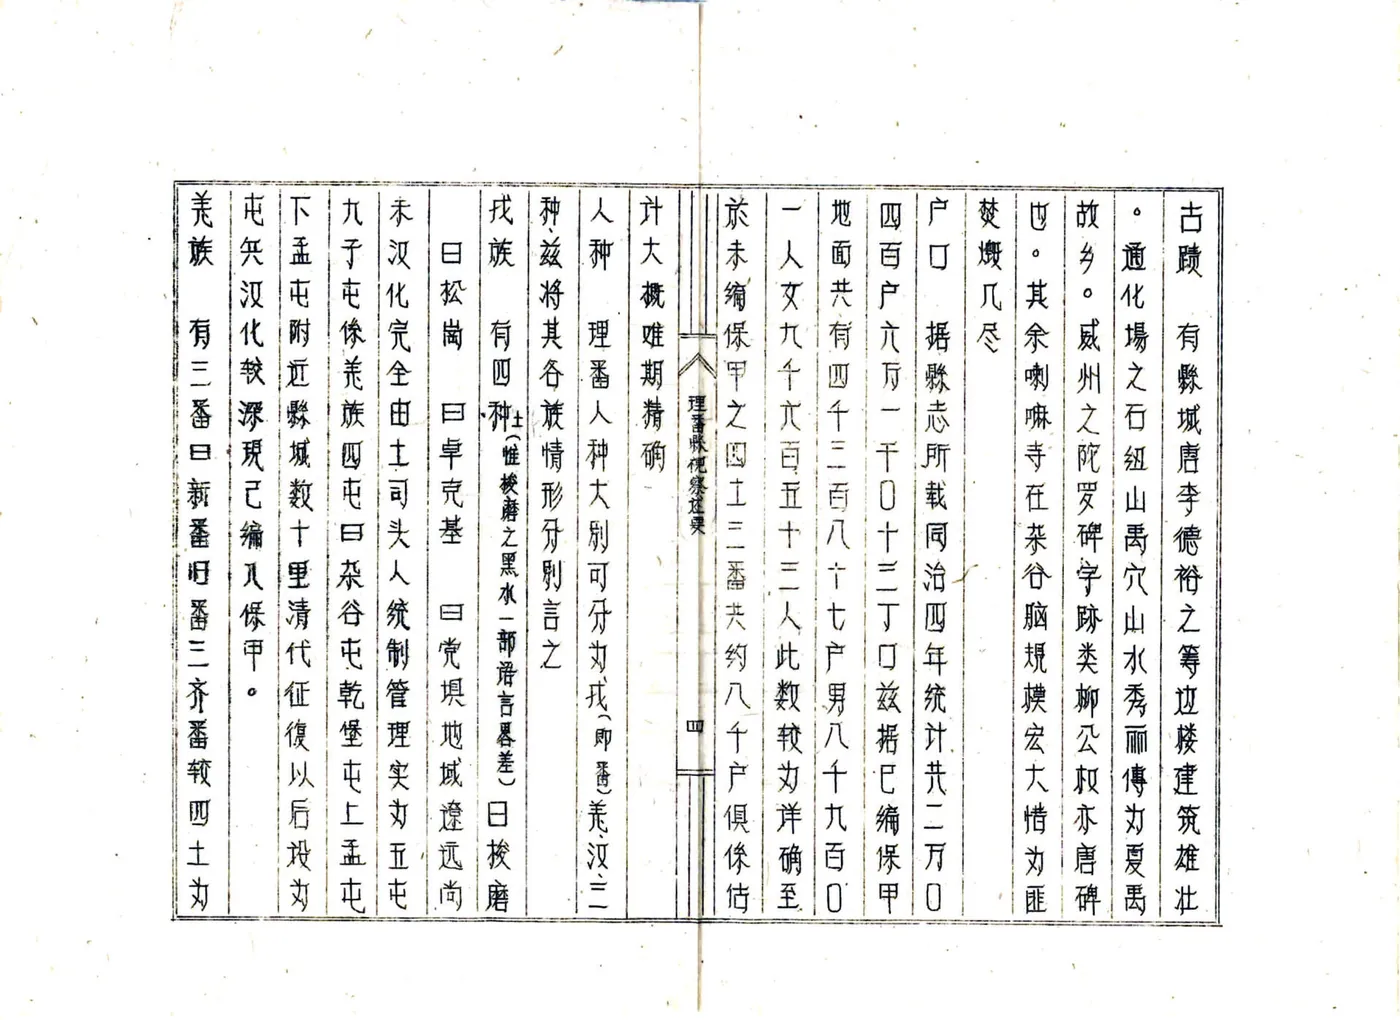 古蹟　有縣城唐李德裕之筹边楼建筑雄壮
。通化場之石纽山禹穴山水秀丽傳为夏禹
故乡。威州之陀罗碑字跡类柳公权亦唐碑
也。其余喇嘛寺在杂谷脑规模宏大惜为匪
焚燬几尽
户口　据縣志所载同治四年统计共二万〇
四百户六万一千〇十三丁口兹据已编保甲
地面共有四千三百八十七户男八千九百〇
一人女九千六百五十三人此数较为详确至
於未编保甲之四土三番共约八千户俱係估
理番縣視察述要
四
计大概难期精确
人种　理番人种大别可分为、戎（即番）羌、汉、三
种、兹将其各族情形分别言之
戎族　有四种、土（惟梭磨之黑水一部语言畧差）曰梭磨
曰松岗　曰卓克基　曰党坝地域遼远尚
未汉化完全由土司头人统制管理实为五屯
九子屯係羌族四屯曰杂谷屯乾堡屯上孟屯
下孟屯附近縣城数十里清代征復以后设为
屯兵汉化较深現己编入保甲。
羌族　有三番曰新番旧番三齐番较四土为